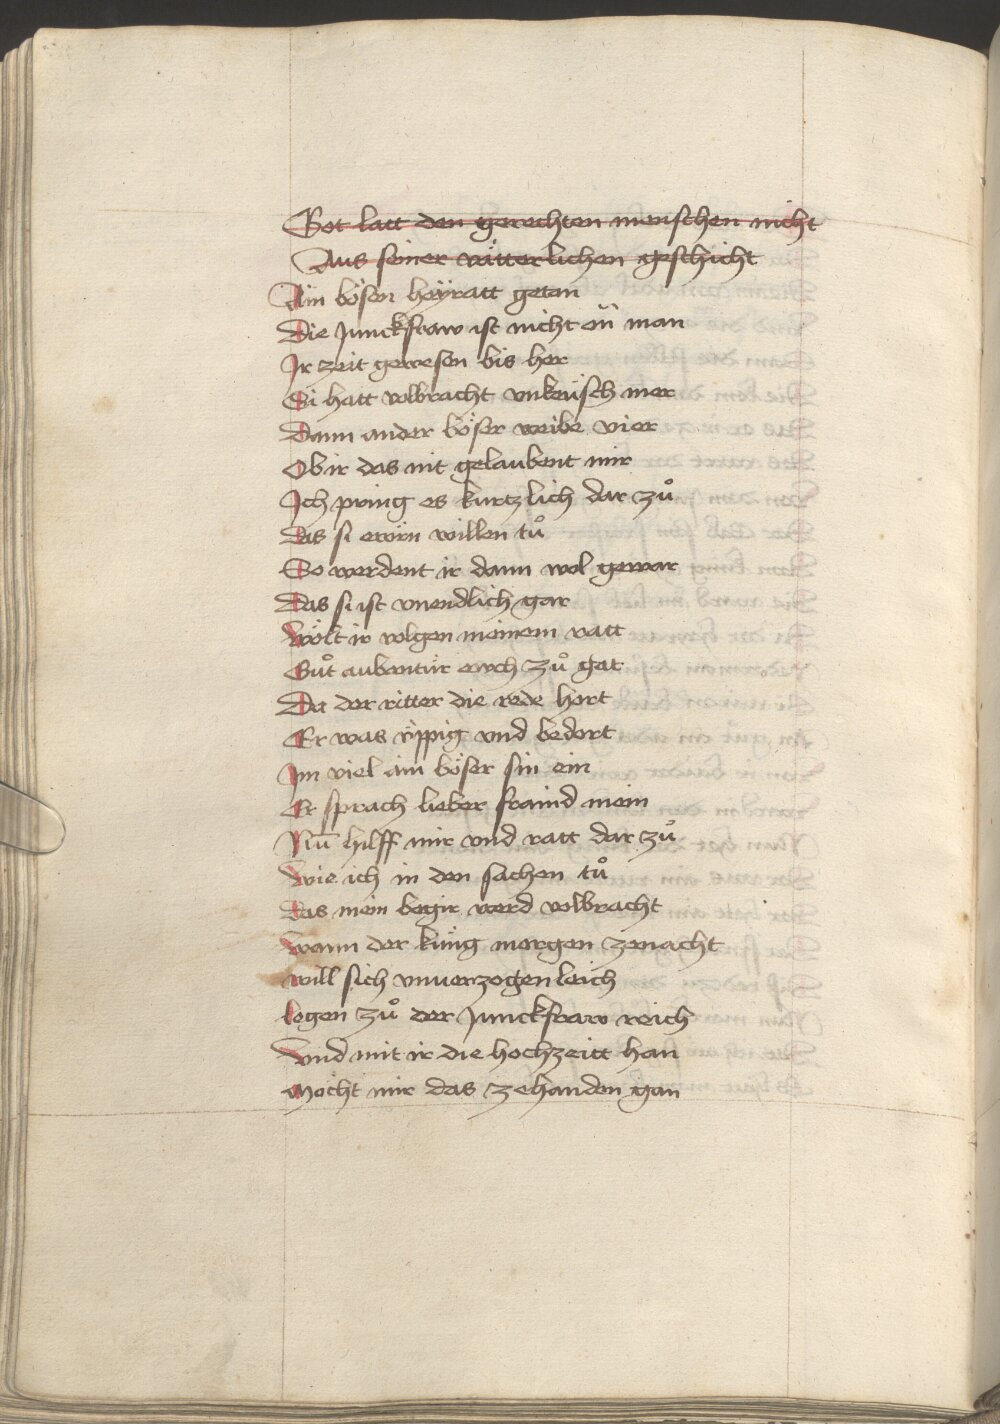 Got latt den gerechten menschen nicht
Aus seiner vätterlichen geschicht
Ain bösen heÿratt getan
Die Junckfraw ist nicht on man
Ir zeit gewesen bis her
Si hatt volbracht vnkeüsch mer
Dann ander böser weibe vier
Ob ir das nit gelaubent mir
Ich pring es kurtzlich dar zuͦ
das si ewrn willen tuͦ
So werdent ir dann wol gewar
Das si ist vnendlich gar
wölt ir volgen meinem ratt
Guͦt aubentür ewch zuͦ gat
Da der ritter die rede hort
Er was üppig vnd bedort
Im viel ain böser sin ein
Er sprach lieber fraind mein
Nu̅ hilff mir vnd ratt dar zuͦ
wie ich in den sachen tuͦ
das mein begir werd volbracht
wann der küng morgen zenacht
will sich vnuerzogenleich
legen zuͦ der Junckfraw reich
vnd mit ir die hochzeitt han
Möcht mir das zehanden gan